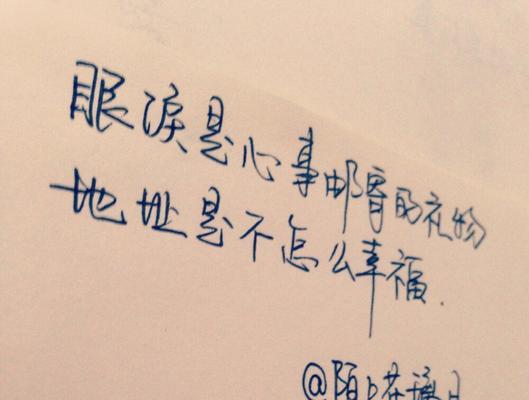 眼淚是心事邮寄的礼物
地址是不怎么幸福.
@陌上